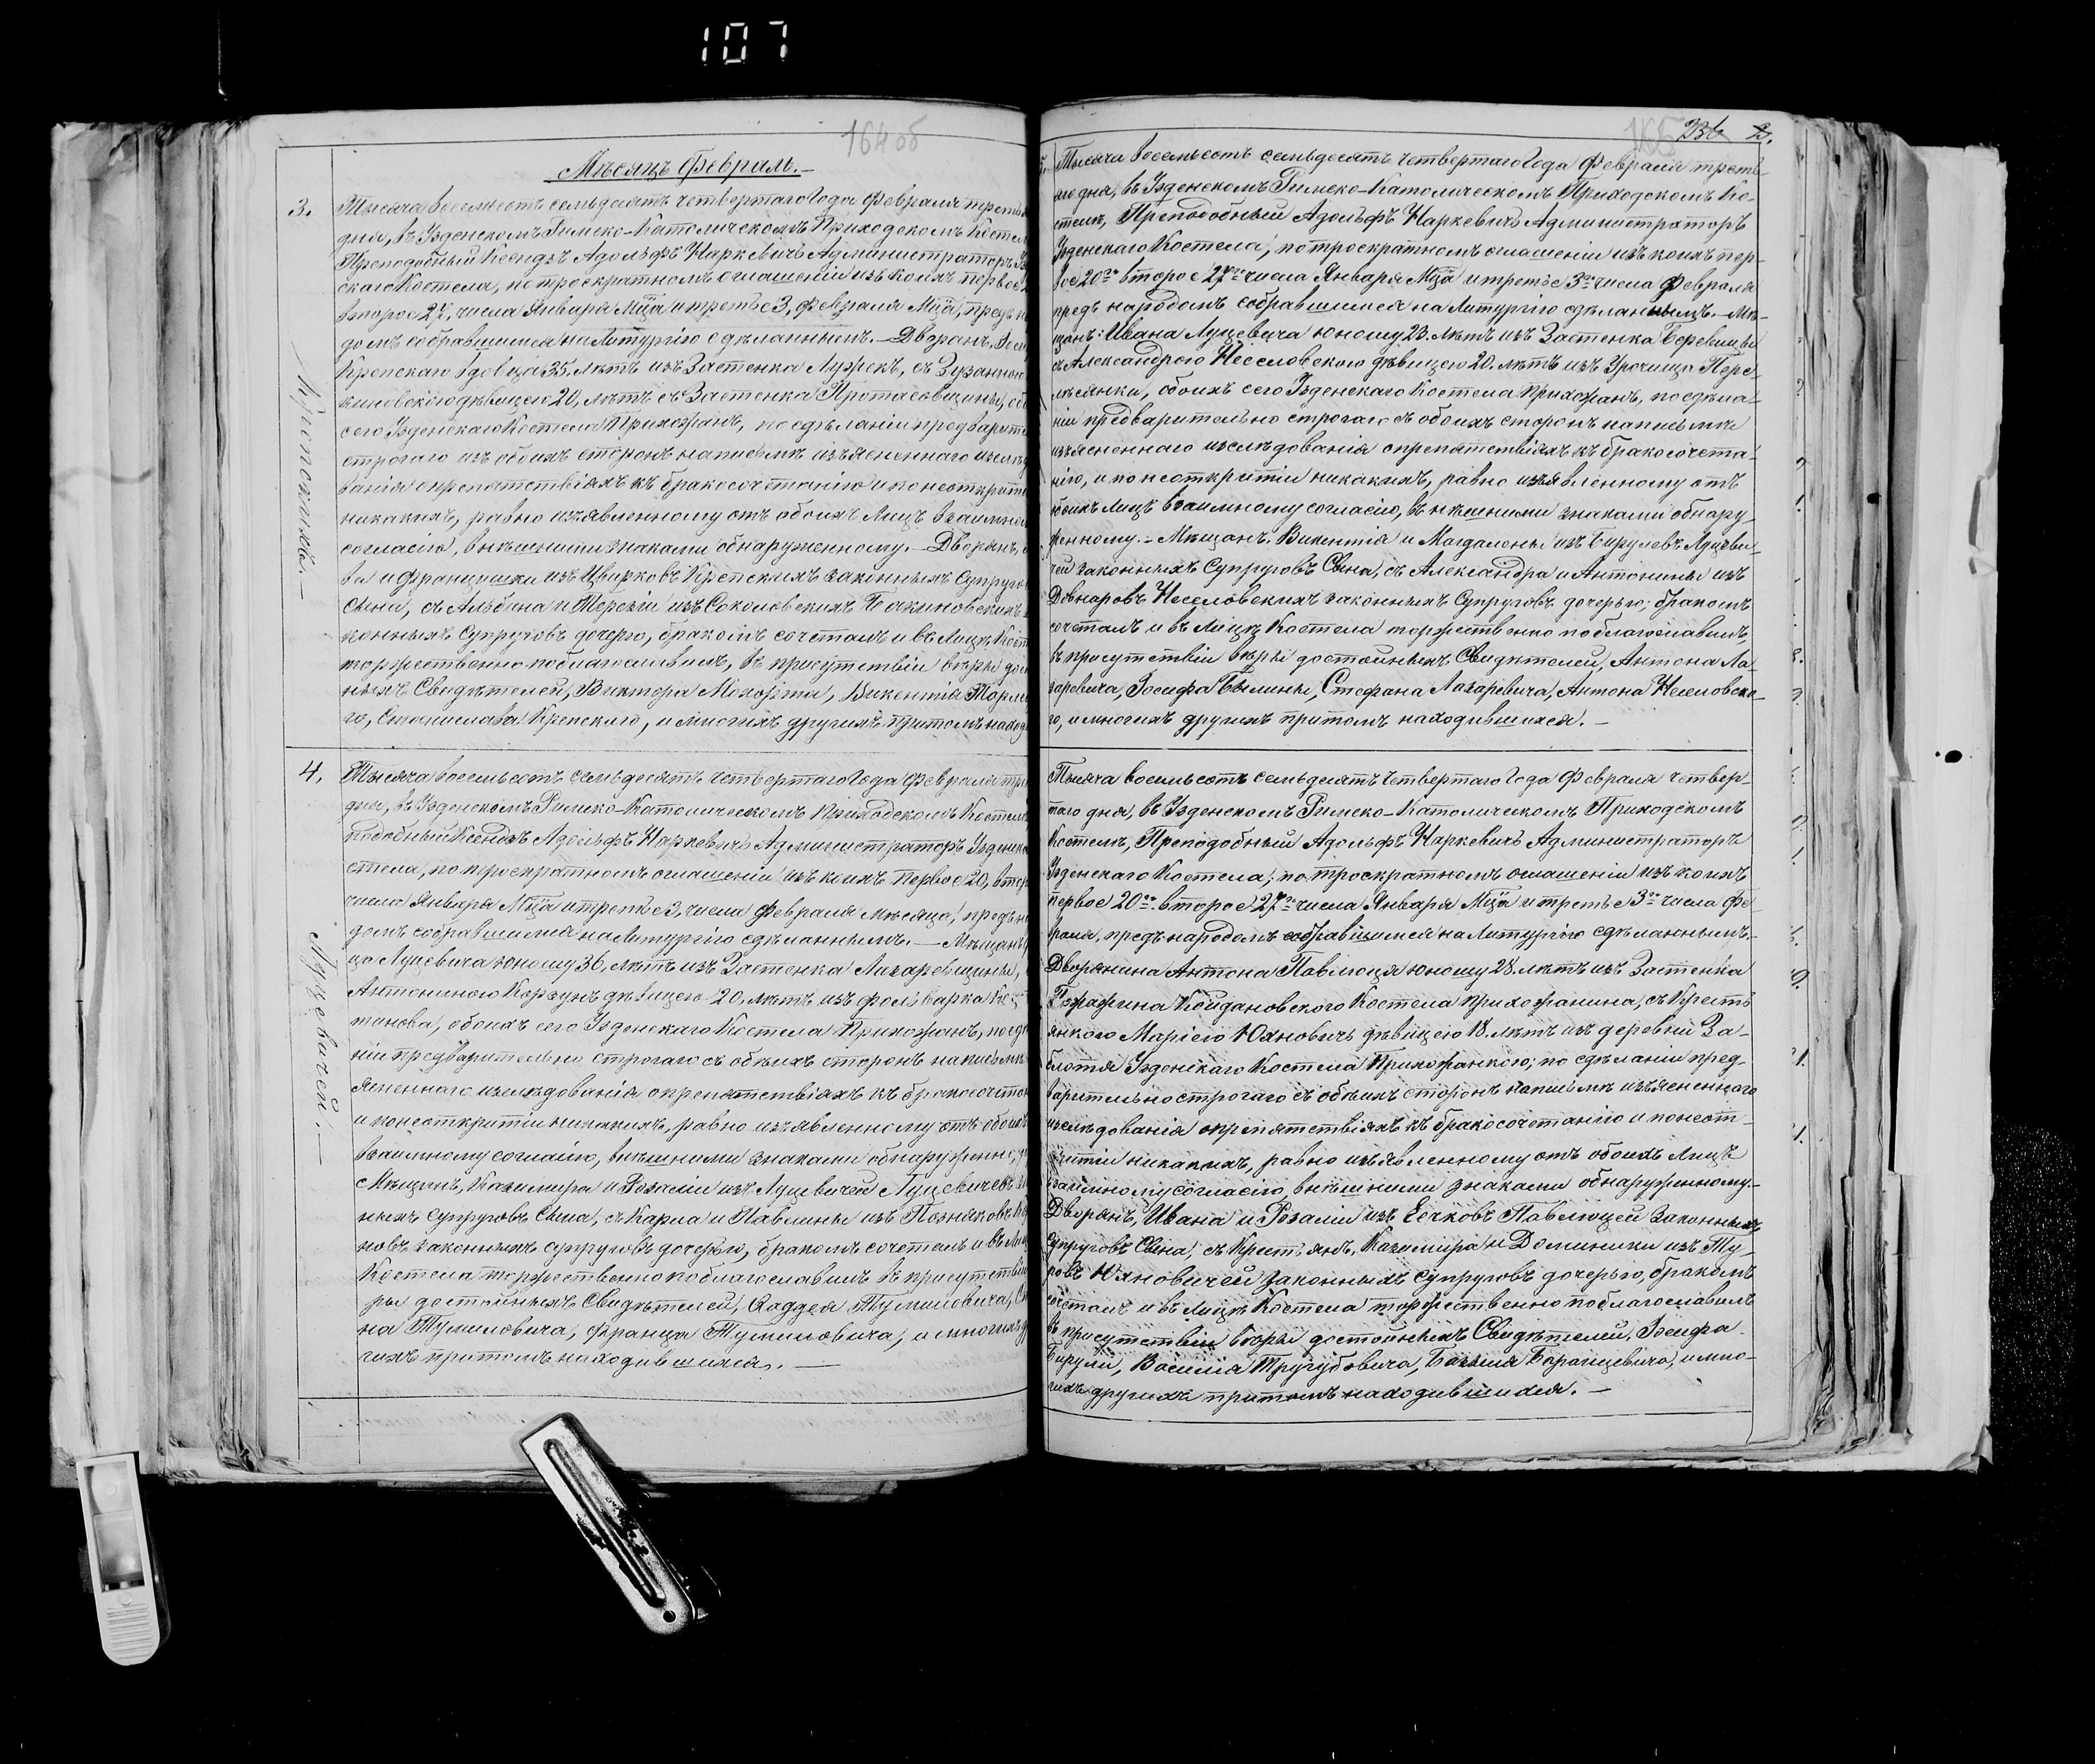 107
164 об
Мѣсяцъ Февраль.
3.
Крепскихъ.
Тысяча восемьсотъ семьдесятъ четвертаго Года Февраля треть
дня, въ Узденскомъ Римско-Католическомъ Приходскомъ Костел
Преподобный Ксендзъ Адольфъ Наркевичъ Администраторъ Уз
скаго Костела, по троекратномъ оглашеніи изъ коихъ первое
второе 27, числа Января Мца и третье 3, Февраля Мца, предъ н
домъ собравшимся на Литургію сдѣланнымъ. Дворянъ,
Крепскаго вдовца 35. лѣтъ изъ Застенка Лужекъ, съ Зузанною
киновскою дѣвицею 20, лѣтъ съ Застенка Протасовщины, об
сего Узденскаго Костела Прихожанъ, по сдѣланіи предварите
строгаго изъ обоихъ сторонъ написьмѣ изъясненнаго изслѣд
ванія о препятствіяхъ къ бракосочетанію и по неоткрыті
никакихъ, равно изъявленному отъ обоихъ Лицъ взаимном
согласію, внѣшными знаками обнаруженному. Дворянъ,
ва и Францишки изъ Цвирковъ Крепскихъ законныхъ Супруго
Сына, съ Альбина и Терезіи изъ Соколовскихъ Бакиновскихъ
конныхъ Супруговъ дочерю, бракомъ сочеталъ и въ Лицѣ Кост
торжественно поблагославилъ, въ присутствіи вѣры дос
ныхъ Свидѣтелей, Виктора Мохорта, Викентія
го, Станислава Крепскаго, и многихъ другихъ притомъ наход
4.
Луцевичей.
Тысяча восемьсотъ семьдесятъ четвертаго Года Февраля тре
дня, въ Узденскомъ Римско-Католическомъ Приходскомъ Костелѣ
подобный Ксендзъ Адольфъ Наркевичъ Администраторъ Узденска
стела, по троекратномъ оглашеніи изъ коихъ первое 20, втор
числа Января Мца и третье 3, числа Февраля мѣсяца, предъ н
домъ собравшимся на Литургію сдѣланнымъ. — Мѣщанъ,
ца Луцевича юношу 36, лѣтъ изъ Застенка Лазаревщины,
Антониною Корзунъ дѣвицею 20, лѣтъ изъ фольварка
танова, обоихъ сего Узденскаго Костела Прихожанъ, по сд
ніи предварительно строгаго съ обѣихъ сторонъ написьмѣ
ясненнаго изслѣдованія о препятствіяхъ къ бракосочетан
и по неоткрытіи никакихъ, равно изъявленному отъ обоихъ
взаимному согласію, внѣшними знаками обнаруженно;
Мѣщанъ, Казимира и Розаліи изъ Луцевичей Луцевичевъ
ныхъ супруговъ Сына, съ Карла и Павлины изъ Позняковъ
новъ законныхъ супруговъ дочерью, бракомъ сочеталъ и въ Лиц
Костела торжественно поблагославилъ въ присутствіи
ры достойныхъ Свидѣтелей, Фаддея Тумиловича,
на Тумиловича, Франца Тумиловича, и многихъ д
гихъ притомъ находившихся. —
165 236
Тысяча восемьсотъ семьдесятъ четвертаго Года Февраля треть-
яго дня, въ Узденскомъ Римско-Католическомъ Приходскомъ Ко-
стелѣ, Преподобный Адольфъ Наркевичъ Администраторъ
Узденскаго Костела, по троекратномъ оглашеніи изъ коихъ пер-
вое 20го второе 27го числа Января Мца и третье 3го числа Февраля
предъ народомъ собравшимся на Литургію сдѣланнымъ. — Мѣ-
щанъ: Ивана Луцевича юношу 23. лѣтъ изъ Застенка
съ Александрою Неселовскою дѣвицею 20. лѣтъ изъ Урочища Пере-
мѣжанки, обоихъ сего Узденскаго Костела Прихожанъ, по сдѣла-
ніи предварительно строгаго съ обоихъ сторонъ написьмѣ
изъясненнаго изслѣдованія о препятствіяхъ къ бракосочета-
нію, и по неоткрытіи никакихъ, равно изъявленному отъ
обоихъ Лицъ взаимному согласію, внѣшними знаками обнару-
женному. — Мѣщанъ, Викентія и Магдалены изъ Бирулевъ Луцеви-
чей законныхъ Супруговъ Сына, съ Александра и Антонины изъ
Довнаровъ Неселовскихъ законныхъ Супруговъ дочерью; бракомъ
сочеталъ и въ Лицѣ Костела торжественно поблагославилъ,
въ присутствіи вѣры достойныхъ Свидѣтелей, Антона Ла-
заревича, Іосифа Былины, Стефана Лазаревича, Антона Неселовска-
го, и многихъ другихъ притомъ находившихся. —
Тысяча восемьсотъ семьдесятъ четвертаго Года Февраля четвер-
таго дня, въ Узденскомъ Римско-Католическомъ Приходскомъ
Костелѣ, Преподобный Адольфъ Наркевичъ Администраторъ
Узденскаго Костела, по троекратномъ оглашеніи изъ коихъ
первое 20го второе 27го числа Января Мца и третье 3го числа Фе
враля, предъ народомъ собравшимся на Литургію сдѣланнымъ. —
Дворянина Антона Павлюця юношу 28 лѣтъ изъ Застенка
Койдановскаго Костела прихожанина, съ Кресть-
янкою Маріею Юхновичъ дѣвицею 18. лѣтъ изъ деревни За-
блотья Узденскаго Костела Прихожанкою; по сдѣланіи пред-
варительно строгаго съ обѣихъ сторонъ написьмѣ изъясненнаго
изслѣдованія о препятствіяхъ къ бракосочетанію и по неот-
крытіи никакихъ, равно изъявленному отъ обоихъ Лицъ
взаимному согласію, внѣшними знаками обнаруженному. —
Дворянъ, Ивана и Розаліи изъ Ечковъ Павлюцей Законныхъ
Супруговъ Сына, съ Крестьянъ, Казимира и Доминики изъ Ту-
ровъ Юхновичей Законныхъ Супруговъ дочерью, бракомъ
сочеталъ и въ Лицѣ Костела торжественно поблагославилъ
въ присутствіи вѣры достойныхъ Свидѣтелей, Іосифа
Бирули, Василія Тругубовича, Базыля Боранцевича, и мно-
гихъ другихъ притомъ находившихся. —